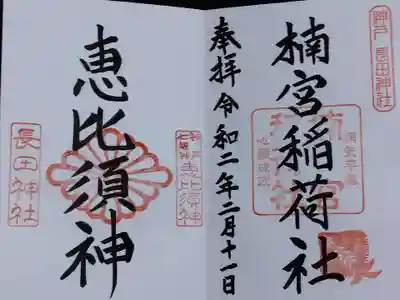 神戸 長田神社
楠宮稲荷社
奉拝 令和二年二月十一日
恵比須神
長田神社